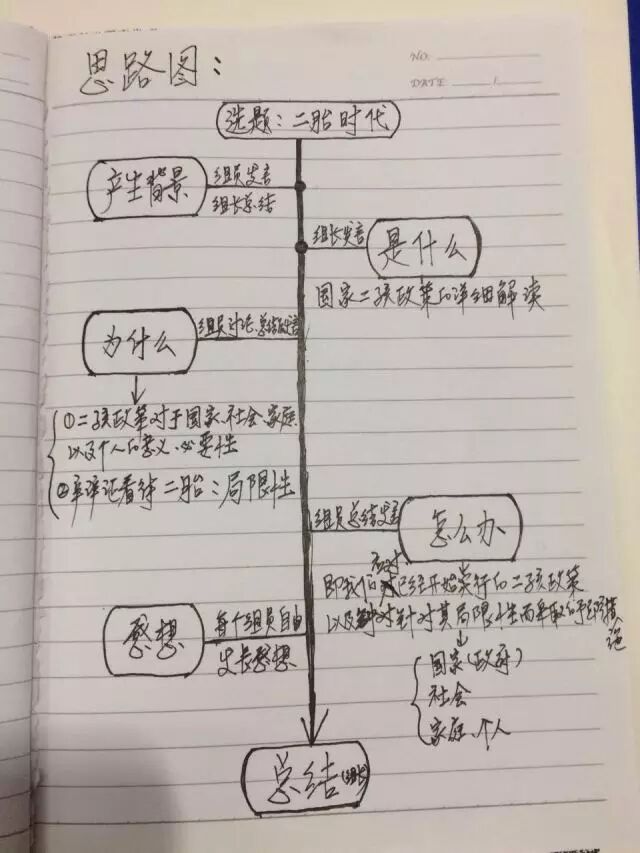 思路图:
NO.
DATE /
选题:二胎时代
产生背景
组员发言
组长总结
组长发言
是什么
国家二孩政策的详细解读
为什么
组员讨论、总结发言
①二孩政策对于国家、社会、家庭
以及个人的意义、必要性
②辩证看待二胎:局限性
组员总结发言
怎么办
应对
即我们 已经开始实行的二孩政策
以及 针对其局限性而采取的
国家(政府)
社会
家庭、个人
感想
每个组员自由
发表感想
总结(组长)